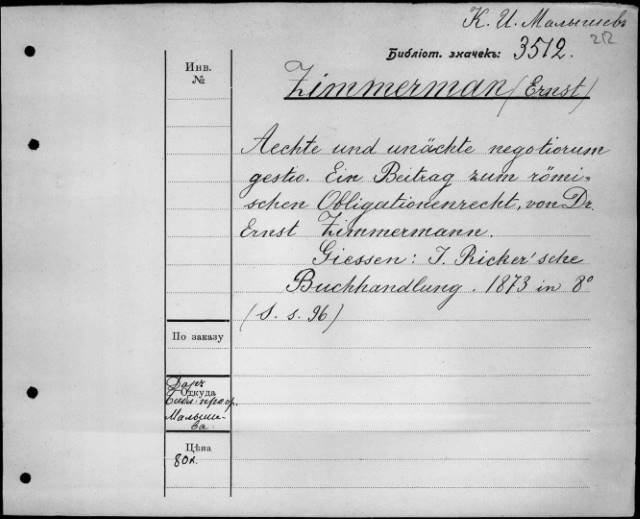 К. И. Малышевъ
212
Библіот. значекъ: 3512.
Инв.
№
Zimmerman (Ernst)
Aechte und unächte negotiorum
gestio. Ein Beitrag zum römi-
schen Obligationenrecht, von Dr.
Ernst Zimmermann.
Giessen: J. Ricker'sche
Buchhandlung. 1873 in 8°
(S. s. 96)
По заказу
Даръ
Откуда
Библ. проф.
Малыше-
ва.
Цѣна
80к.